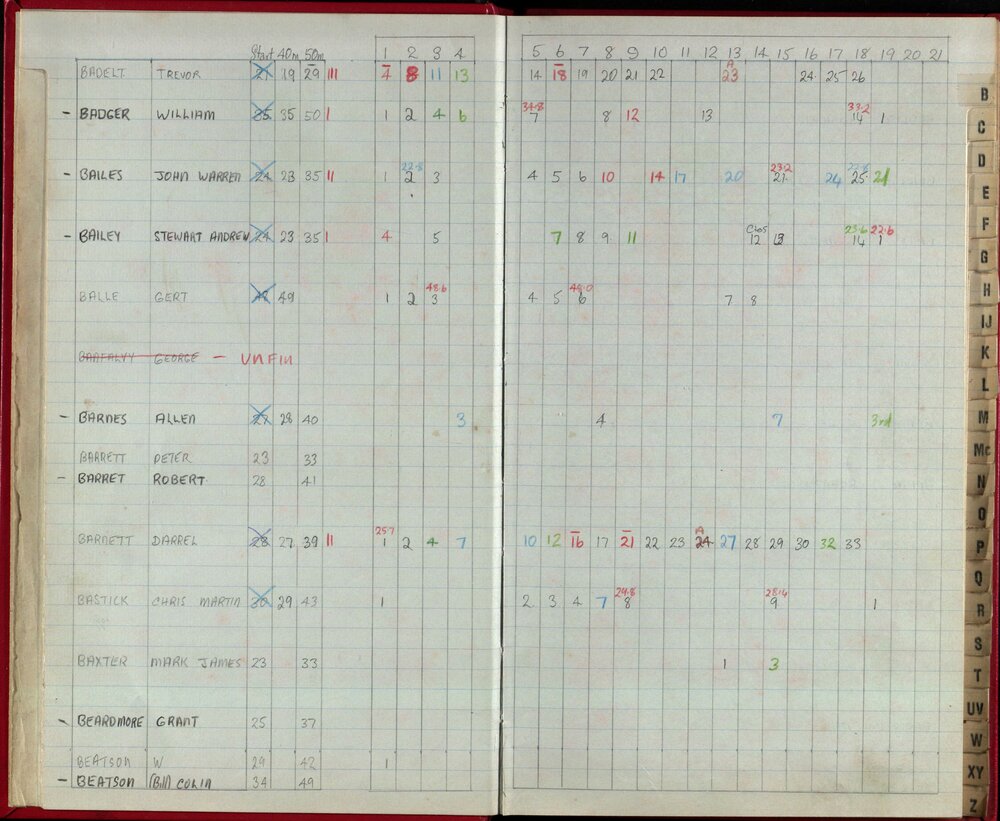 Start 40m 50m 1 2 3 4 5 6 7 8 9 10 11 12 13 14 15 16 17 18 19 20 21
A
BADELT TREVOR 21 19 29 III 4 8 11 13 14 18 19 20 21 22 23 24 25 26
34.8 33.2
- BADGER WILLIAM 35 35 50 I 1 2 4 6 7 8 12 13 14 1
22.8 23.2
- BAILES JOHN WARREN 24 23 35 II 1 2 3 4 5 6 10 14 17 20 21 24 25 21
23.6 22.6
- BAILEY STEWART ANDREW 24 23 35 I 4 5 7 8 9 11 12 13 14 1
48.6 49.0
BALLE GERT 48 49 1 2 3 4 5 6 7 8
GEORGE - UNFIN
- BARNES ALLEN 27 28 40 3 4 7 3rd
BARRETT PETER 23 33
- BARRET ROBERT 28 41
25.7 A
BARNETT DARREL 28 27 39 II 1 2 4 7 10 12 16 17 21 22 23 24 27 28 29 30 32 33
29.8 28.4
BASTICK CHRIS MARTIN 30 29 43 1 2 3 4 7 8 9 1
BAXTER MARK JAMES 23 33 1 3
- BEARDMORE GRANT 25 37
BEATSON W 29 42 1
- BEATSON (Bill) COLIN 34 49
B
C
D
E
F
G
H
IJ
K
L
M
Mc
N
O
P
Q
R
S
T
UV
W
XY
Z